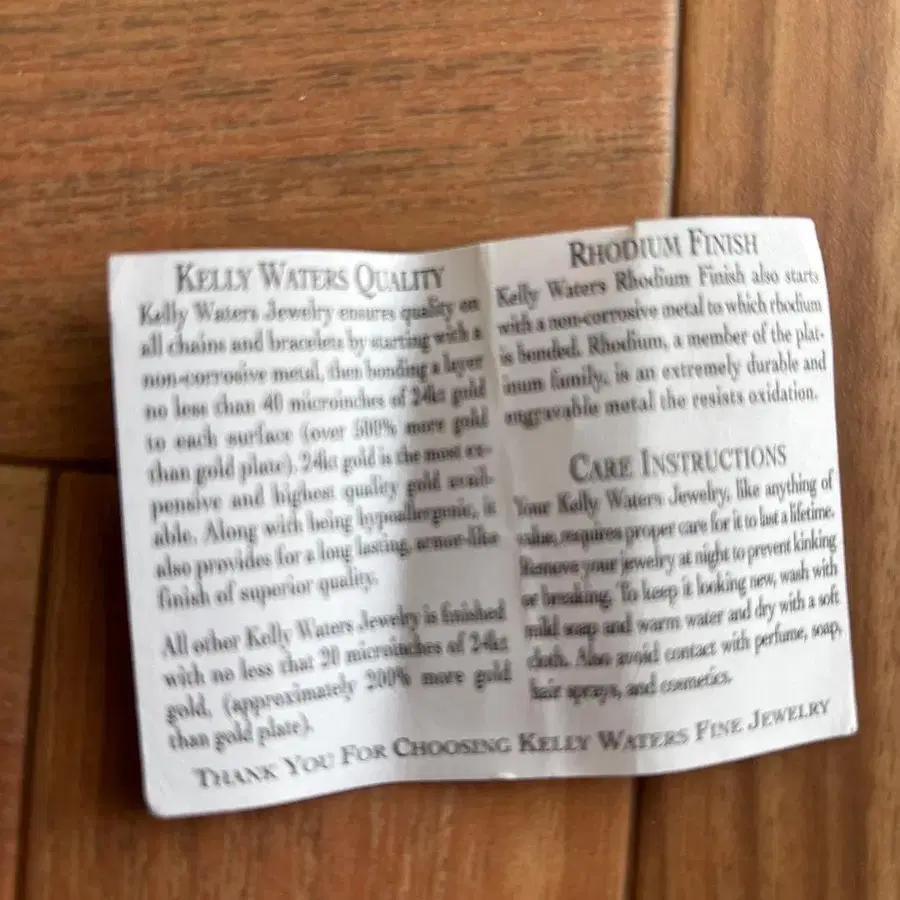 KELLY WATERS QUALITY
Kelly Waters Jewelry ensures quality on
all chains and bracelets by starting with a
non-corrosive metal, then bonding a layer
no less than 40 microinches of 24kt gold
to each surface (over 500% more gold
than gold plate). 24kt gold is the most ex-
pensive and highest quality gold avail-
able. Along with being hypoallergenic, it
also provides for a long lasting, armor-like
finish of superior quality.
All other Kelly Waters Jewelry is finished
with no less that 20 microinches of 24kt
gold, (approximately 200% more gold
than gold plate).
RHODIUM FINISH
Kelly Waters Rhodium Finish also starts
with a non-corrosive metal to which rhodium
is bonded. Rhodium, a member of the plat-
inum family, is an extremely durable and
engravable metal the resists oxidation.
CARE INSTRUCTIONS
Your Kelly Waters Jewelry, like anything of
value, requires proper care for it to last a lifetime.
Remove your jewelry at night to prevent kinking
or breaking. To keep it looking new, wash with
mild soap and warm water and dry with a soft
cloth. Also avoid contact with perfume, soap,
hair sprays, and cosmetics.
THANK YOU FOR CHOOSING KELLY WATERS FINE JEWELRY